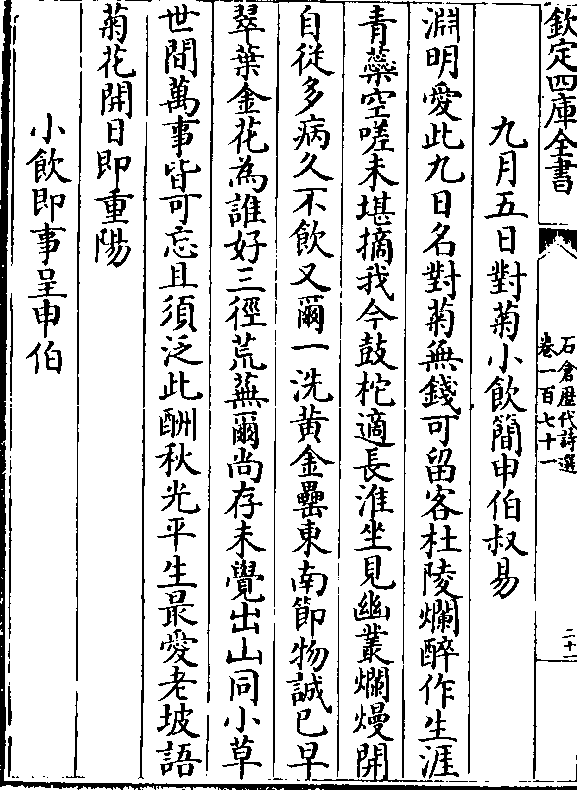 欽定四庫全書
石倉歷代詩選
卷一百七十一
二十一
九月五日對菊小飲簡申伯叔易
淵明愛此九日名對菊無錢可留客杜陵爛醉作生涯
青蘂空嗟未堪摘我今鼓柁適長淮坐見幽叢爛熳開
自從多病久不飲又爾一洗黃金罍東南節物誠已早
翠葉金花為誰好三徑荒蕪爾尚存未覺出山同小草
世間萬事皆可忘且須泛此酬秋光平生最愛老坡語
菊花開日即重陽
小飲即事呈申伯